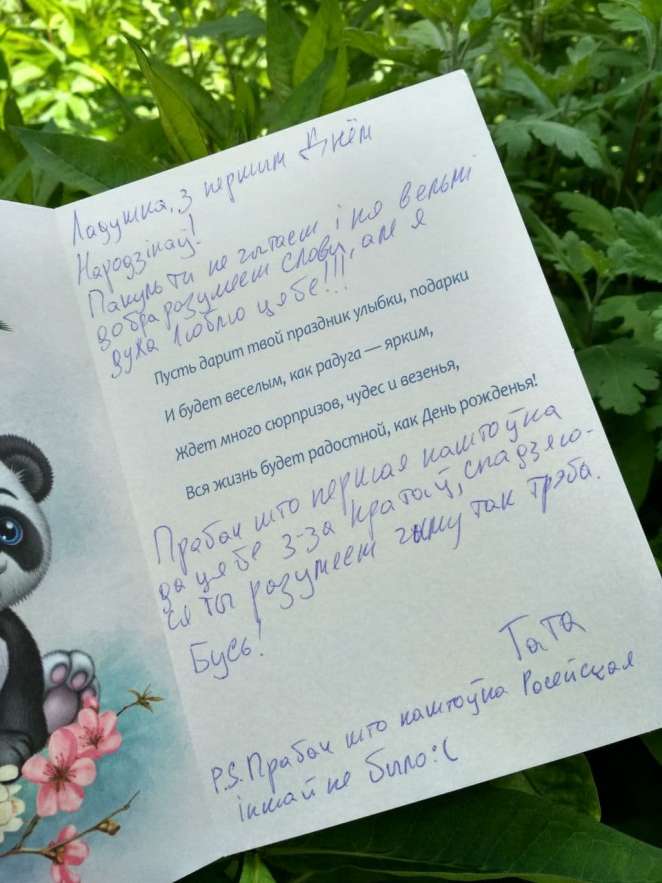 Ладушка, з першим Днём
Народзінаў!
Пакуль ти не чытаеш і не вельмі
добра разумееш словы, але я
дужа люблю цябе!!!
Пусть дарит твой праздник улыбки, подарки
И будет веселым, как радуга — ярким,
Ждет много сюрпризов, чудес и везенья,
Вся жизнь будет радостной, как День рожденья!
Прабач што першая паштоўка
да цябе з-за кратаў, спадзяю-
ся ты разумееш чыму так трэба.
Бусь!
Тата
P.S. Прабач што паштоўка Росейская
іншай не было :(